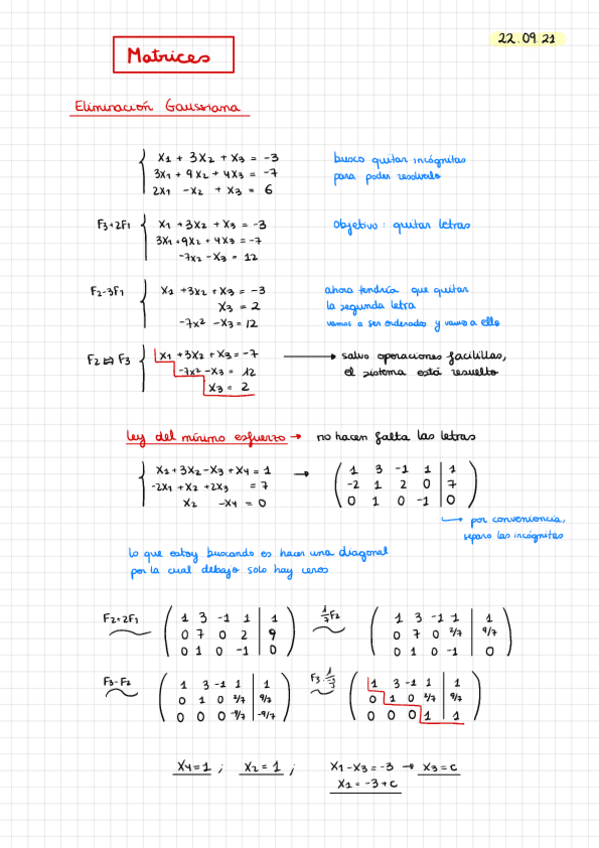 22.09.21
Matrices
Eliminación Gaussiana
x1 + 3x2 + x3 = -3
3x1 + 9x2 + 4x3 = -7
2x1 -x2 + x3 = 6
busco quitar incógnitas
para poder resolverlo
F3+2F1
x1 + 3x2 + x3 = -3
3x1 + 9x2 + 4x3 = -7
-7x2 - x3 = 12
objetivo: quitar letras
F2-3F1
x1 + 3x2 + x3 = -3
x3 = 2
-7x² - x3 = 12
ahora tendría que quitar
la segunda letra
vamos a ser ordenados y vamos a ello
F2 ⇔ F3
x1 + 3x2 + x3 = -7
-7x² - x3 = 12
x3 = 2
→ salvo operaciones facilillas,
el sistema está resuelto
ley del mínimo esfuerzo → no hacen falta las letras
x1 + 3x2 - x3 + x4 = 1
-2x1 + x2 + 2x3 = 7
x2 -x4 = 0
→
1 3 -1 1 | 1
-2 1 2 0 | 7
0 1 0 -1 | 0
→ por conveniencia,
separo las incógnitas
lo que estoy buscando es hacer una diagonal
por la cual debajo solo hay ceros
F2+2F1
1 3 -1 1 | 1
0 7 0 2 | 9
0 1 0 -1 | 0
1/7 F2
1 3 -1 1 | 1
0 7 0 2/7 | 9/7
0 1 0 -1 | 0
F3-F2
1 3 -1 1 | 1
0 1 0 2/7 | 9/7
0 0 0 -9/7 | -9/7
F3
1 3 -1 1 | 1
0 1 0 2/7 | 9/7
0 0 0 1 | 1
x4 = 1 ; x2 = 1 ; x1 - x3 = -3 → x3 = c
x1 = -3 + c